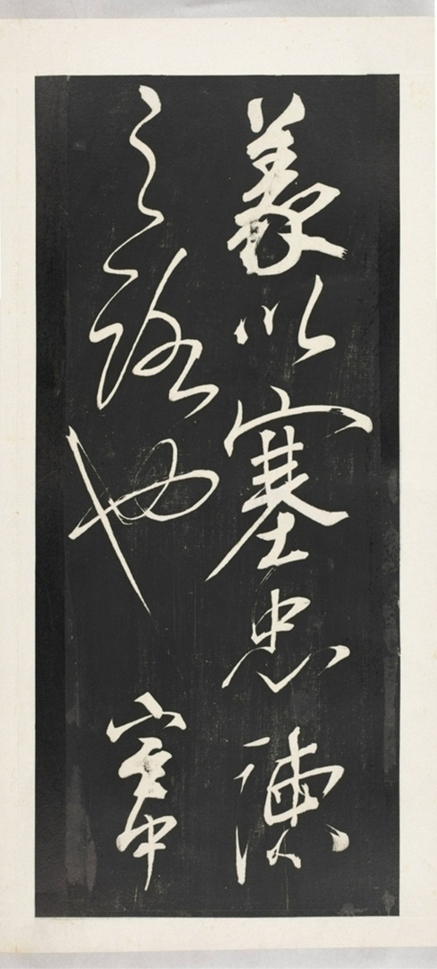 義以塞忠諫
之路也宮中